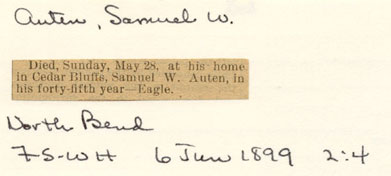 Auten, Samuel W.
Died, Sunday, May 28, at his home
in Cedar Bluffs, Samuel W. Auten, in
his forty-fifth year—Eagle.
North Bend
7S-WH 6 Jun 1899 2:4